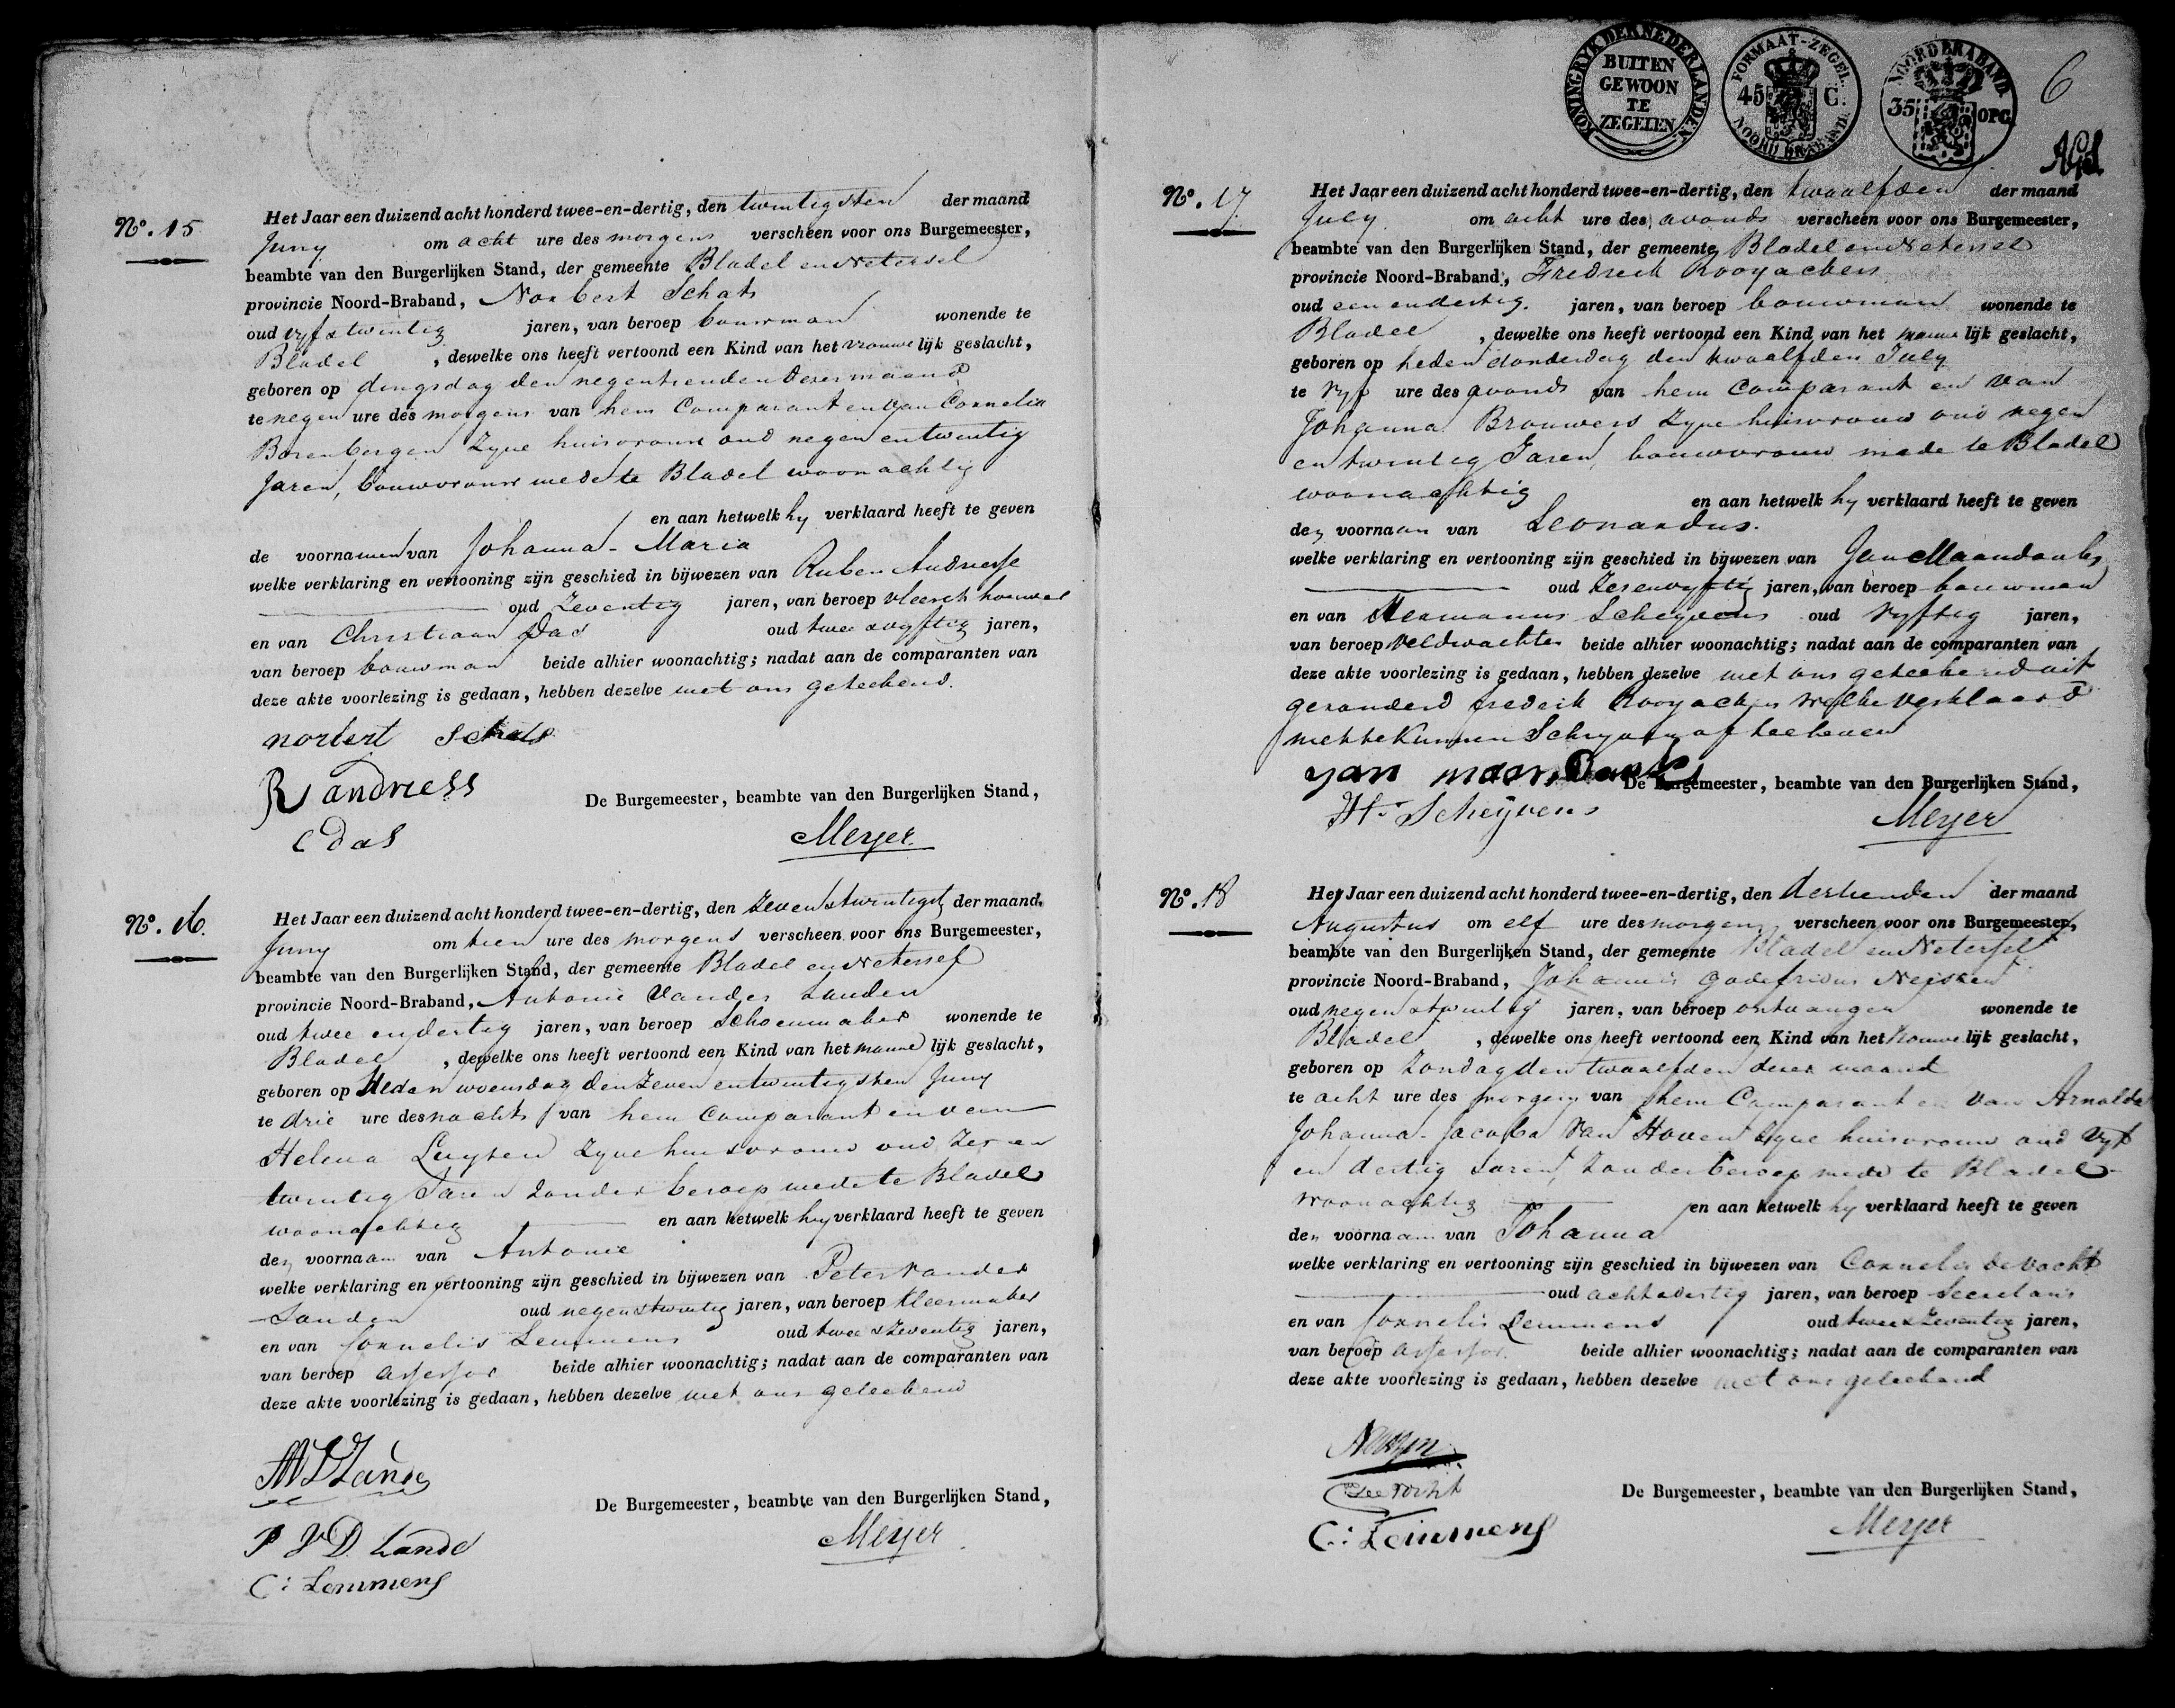 No. 15
Het Jaar een duizend acht honderd twee-en-dertig, den twintigsten der maand
Juny om acht ure des morgens verscheen voor ons Burgemeester,
beambte van den Burgerlijken Stand, der gemeente Bladel en Netersel
provincie Noord-Braband, Norbert Schats
oud vyf & twintig jaren, van beroep bouwman wonende te
Bladel , dewelke ons heeft vertoond een Kind van het vrouwelijk geslacht,
geboren op dingsdag den negentienden dezer maand
te negen ure des morgens van hem Comparant en van Cornelia
Borenbergen Zyne huisvrouw oud negen en twintig
Jaren, bouwvrouw mede te Bladel woonachtig
en aan hetwelk hy verklaard heeft te geven
de voornamen van Johanna-Maria
welke verklaring en vertooning zijn geschied in bijwezen van Ruben Andriesse
oud Zeventig jaren, van beroep vleeschhouwer
en van Christiaan Das oud twee & vyftig jaren,
van beroep bouwman beide alhier woonachtig; nadat aan de comparanten van
deze akte voorlezing is gedaan, hebben dezelve met ons geteekend.
norbert Schats
R andriess
C das
De Burgemeester, beambte van den Burgerlijken Stand,
Meyer
No. 16.
Het Jaar een duizend acht honderd twee-en-dertig, den Zeven & twintigst der maand
Juny om tien ure des morgens verscheen voor ons Burgemeester,
beambte van den Burgerlijken Stand, der gemeente Bladel en Netersel
provincie Noord-Braband, Antonie Vander Sanden
oud twee en dertig jaren, van beroep Schoenmaker wonende te
Bladel , dewelke ons heeft vertoond een Kind van het mannelijk geslacht,
geboren op Heden woensdag den Zeven en twintigsten Juny
te drie ure des nachts van hem Comparant en van
Helena Luyten Zyne huisvrouw oud Zes en
twintig Jaren Zonder beroep mede te Bladel
woonachtig en aan hetwelk hy verklaard heeft te geven
den voornaam van Antonie
welke verklaring en vertooning zijn geschied in bijwezen van Peter vander
Sanden oud negen & twintig jaren, van beroep Kleermaker
en van Cornelis Lemmens oud twee & Zeventig jaren,
van beroep assessor beide alhier woonachtig; nadat aan de comparanten van
deze akte voorlezing is gedaan, hebben dezelve met ons geteekend
P V D Sande
C: Lemmens
De Burgemeester, beambte van den Burgerlijken Stand,
Meyer
KONINGRYK DER NEDERLANDEN.
BUITEN
GEWOON
TE
ZEGELEN
FORMAAT-ZEGEL.
45 C.
NOORD BRABAND.
NOORD BRABAND.
35 OPC.
6
No. 17
Het Jaar een duizend acht honderd twee-en-dertig, den twaalfden der maand
July om acht ure des avonds verscheen voor ons Burgemeester,
beambte van den Burgerlijken Stand, der gemeente Bladel en Netersel
provincie Noord-Braband, Fredrik Rooyackers
oud een en dertig. jaren, van beroep bouwman wonende te
Bladel , dewelke ons heeft vertoond een Kind van het mannelijk geslacht,
geboren op heden donderdag den twaalfden July
te vyf ure des avonds van hem Comparant en van
Johanna Brouwers Zyne huisvrouw oud negen
en twintig Jaren, bouwvrouw mede te Bladel
woonachtig en aan hetwelk hy verklaard heeft te geven
den voornaam van Leonardus.
welke verklaring en vertooning zijn geschied in bijwezen van Jan Maandonks
oud Zes en vyftig jaren, van beroep bouwman
en van Hermanus Scheyvens oud vyftig jaren,
van beroep veldwachter beide alhier woonachtig; nadat aan de comparanten van
deze akte voorlezing is gedaan, hebben dezelve met ons geteekend uit
gezonderd fredrik Rooyackers welke verklaard
niet te kunnen Schryven of teekenen
yan maandonks
H. Scheÿvens
De Burgemeester, beambte van den Burgerlijken Stand,
Meyer
No. 18
Het Jaar een duizend acht honderd twee-en-dertig, den dertienden der maand
Augustus om elf ure des morgens verscheen voor ons Burgemeester,
beambte van den Burgerlijken Stand, der gemeente Bladel en Netersel
provincie Noord-Braband, Johannis Godefridus Neissen
oud negen & twintig jaren, van beroep ontvanger wonende te
Bladel , dewelke ons heeft vertoond een Kind van het vrouwelijk geslacht,
geboren op Zondag den twaalfden dezer maand
te acht ure des morgens van hem Comparant en van Arnolda
Johanna-Jacoba Van Hoven Zyne huisvrouw oud vyf
en dertig Jaren, Zonder beroep mede te Bladel
woonachtig en aan hetwelk hy verklaard heeft te geven
den voornaam van Johanna
welke verklaring en vertooning zijn geschied in bijwezen van Cornelis de Vocht
oud acht & dertig jaren, van beroep Secretaris
en van Cornelis Lemmens oud twee & Zeventig jaren,
van beroep assessor. beide alhier woonachtig; nadat aan de comparanten van
deze akte voorlezing is gedaan, hebben dezelve met ons geteekend
De Vocht
C: Lemmens
De Burgemeester, beambte van den Burgerlijken Stand,
Meyer